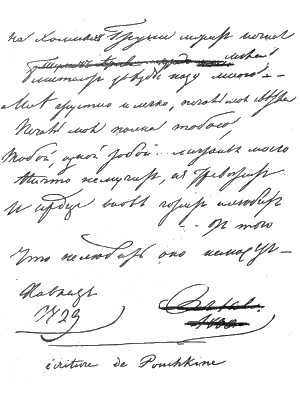 на Грузии ночной
звезды надо мною —
Мне грустно и легко, печаль моя светла
Печаль моя полна тобою,
Тобой, одной тобой... моего
Ничто не мучит, не тревожит
И сердце вновь горит и любит
— от того
Что не любить оно не может —
Кавказъ
1829
écriture de Pouchkine